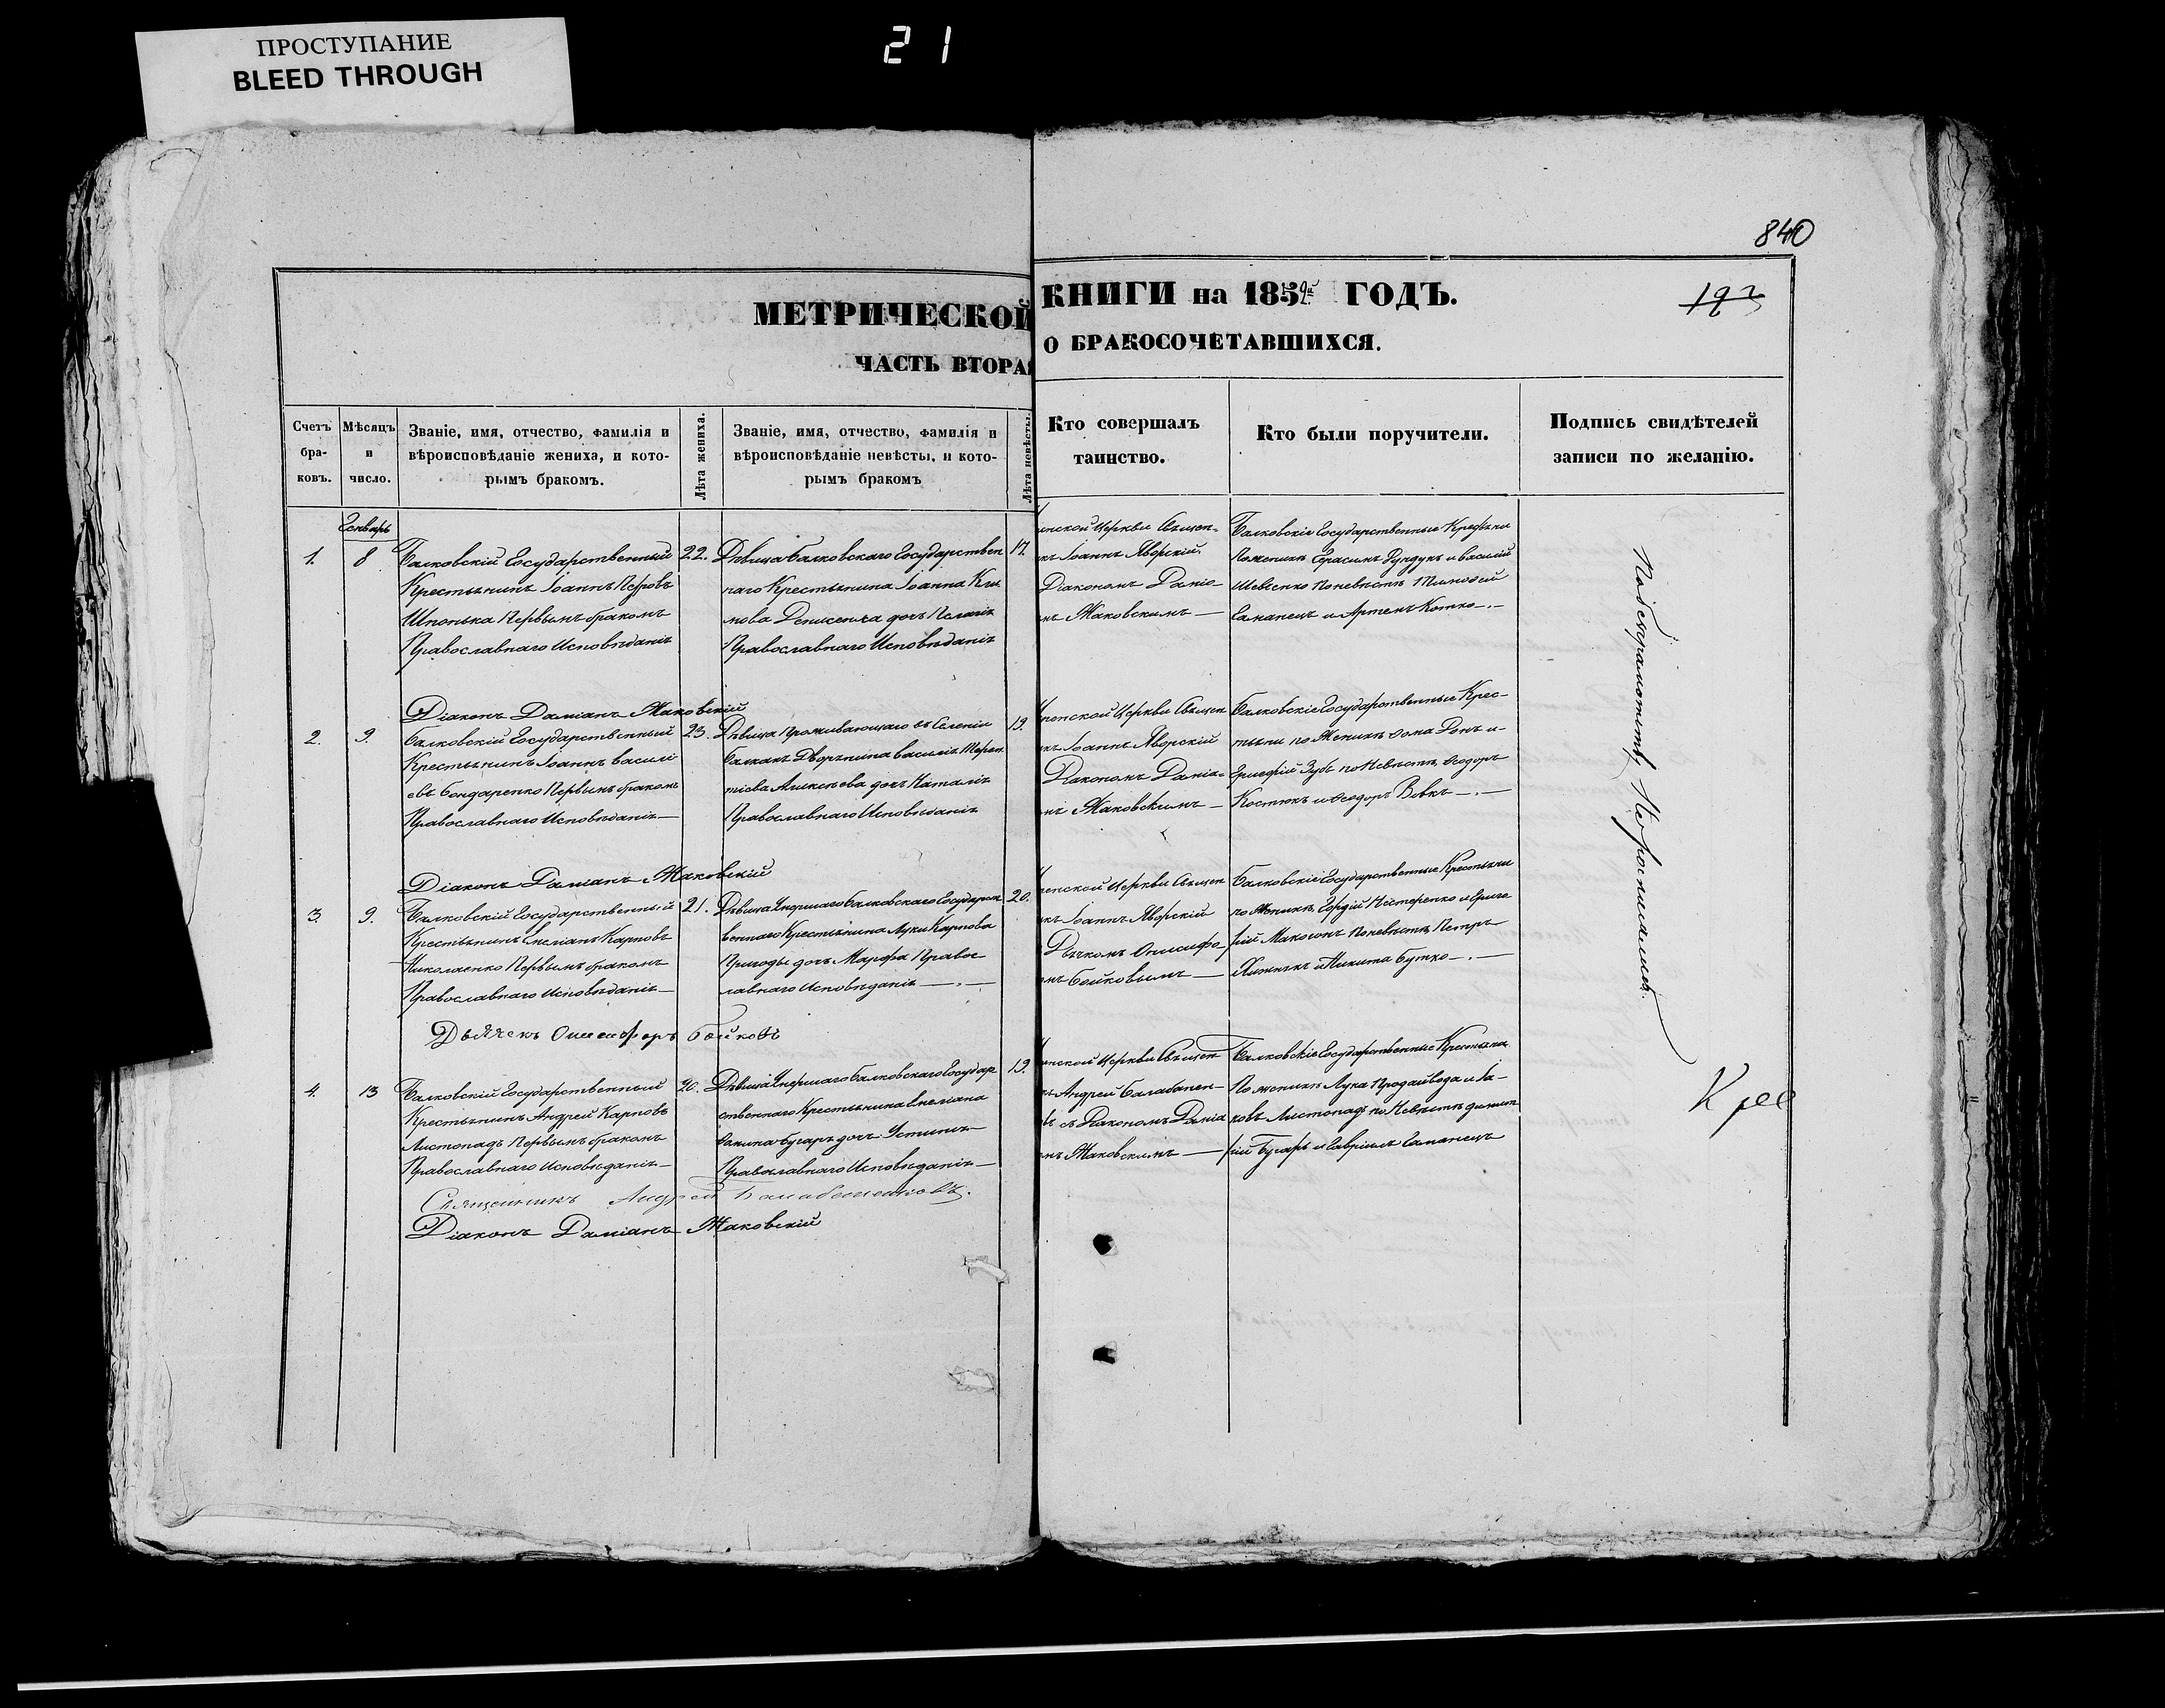 ПРОСТУПАНИЕ
BLEED THROUGH
21
840
МЕТРИЧЕСКОЙ КНИГИ на 1859й ГОДЪ.
ЧАСТЬ ВТОРАЯ О БРАКОСОЧЕТАВШИХСЯ.
Счетъ бра-ковъ.
Мѣсяцъ и число.
Званіе, имя, отчество, фамилія и
вѣроисповѣданіе жениха, и кото-
рымъ бракомъ.
Лѣта жениха.
Званіе, имя, отчество, фамилія и
вѣроисповѣданіе невѣсты, и кото-
рымъ бракомъ
Лѣта невѣсты.
Кто совершалъ
таинство.
Кто были поручители.
Подпись свидѣтелей
записи по желанію.
Генварь
1.
8
Балковскій Государственный
Крестьянинъ Іоаннъ Петровъ
Шпонька Первымъ бракомъ
Православнаго Исповѣданія
22.
Дѣвица Балковскаго Государствен
наго Крестьянина Іоанна Кли
мова Денисенка дочь Пелагія
Православнаго Исповѣданія
17.
Церкви Священ=
Іоаннъ Яворскій
Діакономъ Даміа-
Маковскимъ —
Балковскіе Государственные Крестьяни
По женихѣ Герасимъ Рундукъ и василій
Шевченко По невѣстѣ Тимофей
Саманецъ и Артемъ Котко —.—
Діаконъ Даміанъ Маковскій
2.
9.
Балковскій Государственный
Крестьянинъ Іоаннъ васили
евъ Бондаренко Первымъ бракомъ
Православнаго Исповѣданія —
23.
Дѣвица Проживающаго въ Селеніи
Балкахъ Дворянина василія Терен
тіева Алексѣева дочь Наталія
Православнаго Исповѣданія
19.
Церкви Священ
Іоаннъ Яворскій
Діакономъ Даміа-
Маковскимъ —
Балковскіе Государственные Крес-
тьяни по Женихѣ Ѳома Ронъ и
Зубъ по Невѣстѣ Ѳеодоръ
Костюкъ и Ѳеодоръ Вовкъ —.—
Діаконъ Даміанъ Маковскій
3.
9.
Балковскій Государственный
Крестьянинъ Емеліанъ Карповъ
Николаенко Первымъ бракомъ
Православнаго Исповѣданія —
21.
Дѣвица Умершаго Балковскаго Государст
веннаго Крестьянина Луки Карпова
Пригоды дочь Марфа Правос
лавнаго Исповѣданія —.—
20.
Церкви Священ
Іоаннъ Яворскій
Дьячкомъ Онисифо-
Бойковымъ —
Балковскіе Государственные Крестьяни
по Женихѣ Гордій Нестеренко и Григо
рій Макогонъ По невѣстѣ Петръ
и Никита Бутко —.—
Дьячекъ Онисифоръ Бойковъ
4.
13
Балковскій Государственный
Крестьянинъ Андрей Карповъ
Листопадъ Первымъ бракомъ
Православнаго Исповѣданія —
20.
Дѣвица Умершаго Балковскаго Государ
ственнаго Крестьянина Емеліана
Бугаръ дочь Устинія
Православнаго Исповѣданія —
19.
Церкви Священ
Андрей Балабанен-
съ Діакономъ Даміа
Маковскимъ —
Балковскіе Государственные Крестьяни
По женихѣ Лука Продайвода и Іа-
ковъ Листопадъ по Невѣстѣ димит
рій Бугаръ и Гавріилъ Саманецъ
Священникъ Андрей Балабаненковъ.
Діаконъ Даміанъ Маковскій